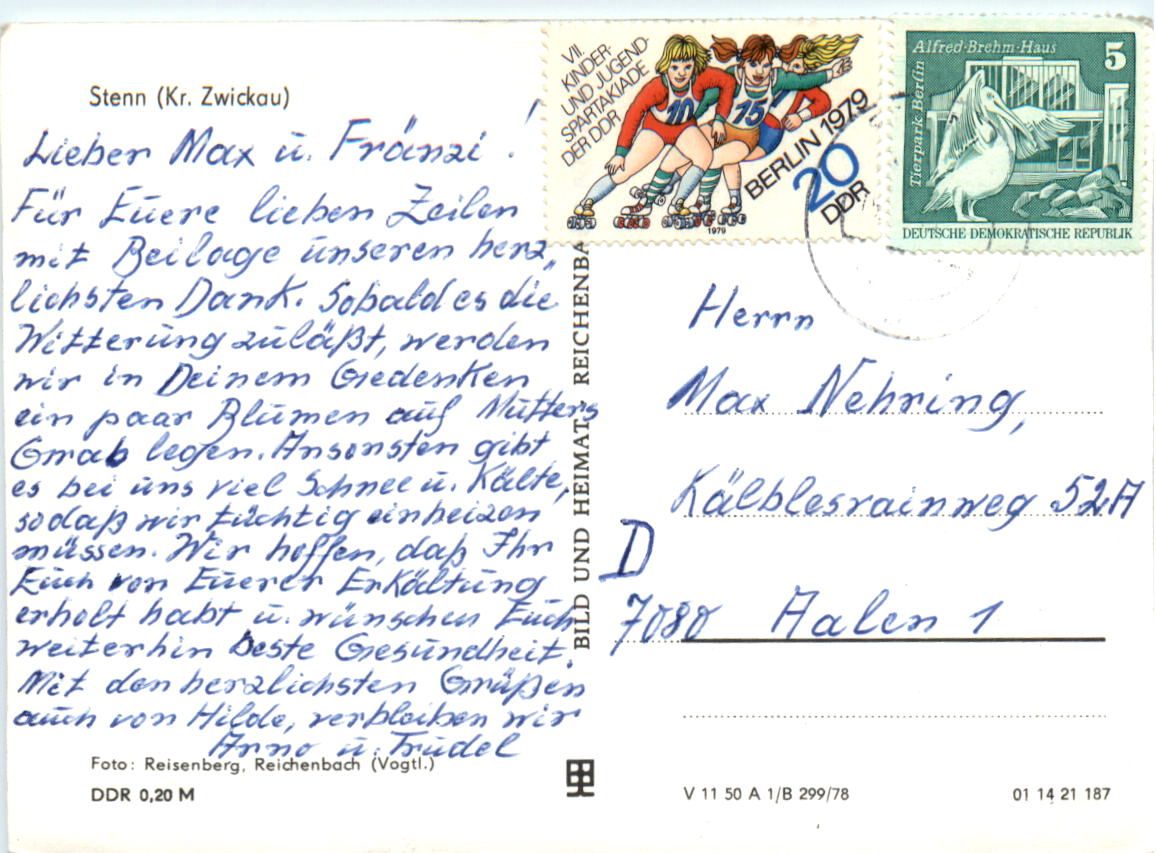 Stenn (Kr. Zwickau)
Lieber Max u. Fränzi!
Für Euere lieben Zeilen
mit Beilage unseren herz„
lichsten Dank. Sobald es die
Witterung zuläßt, werden
wir in Deinem Gedenken
ein paar Blumen auf Mutters
Grab legen. Ansonsten gibt
es bei uns viel Schnee u. Kälte,
sodaß wir tüchtig einheizen
müssen. Wir hoffen, daß Ihr
Euch von Euerer Erkältung
erholt habt u. wünschen Euch
weiterhin beste Gesundheit.
Mit den herzlichsten Grüßen
auch von Hilde, verbleiben wir
Arno u. Trudel
Foto: Reisenberg, Reichenbach (Vogtl.)
DDR 0,20 M
BILD UND HEIMAT, REICHENBA
VII.
KINDER-
UND JUGEND-
SPARTAKIADE
DER DDR
10
15
BERLIN 1979
20
DDR
1979
Alfred-Brehm-Haus
5
Tierpark Berlin
DEUTSCHE DEMOKRATISCHE REPUBLIK
Herrn
Max Nehring,
Kälblesrainweg 52A
D
7080 Aalen 1
V 11 50 A 1/B 299/78
01 14 21 187